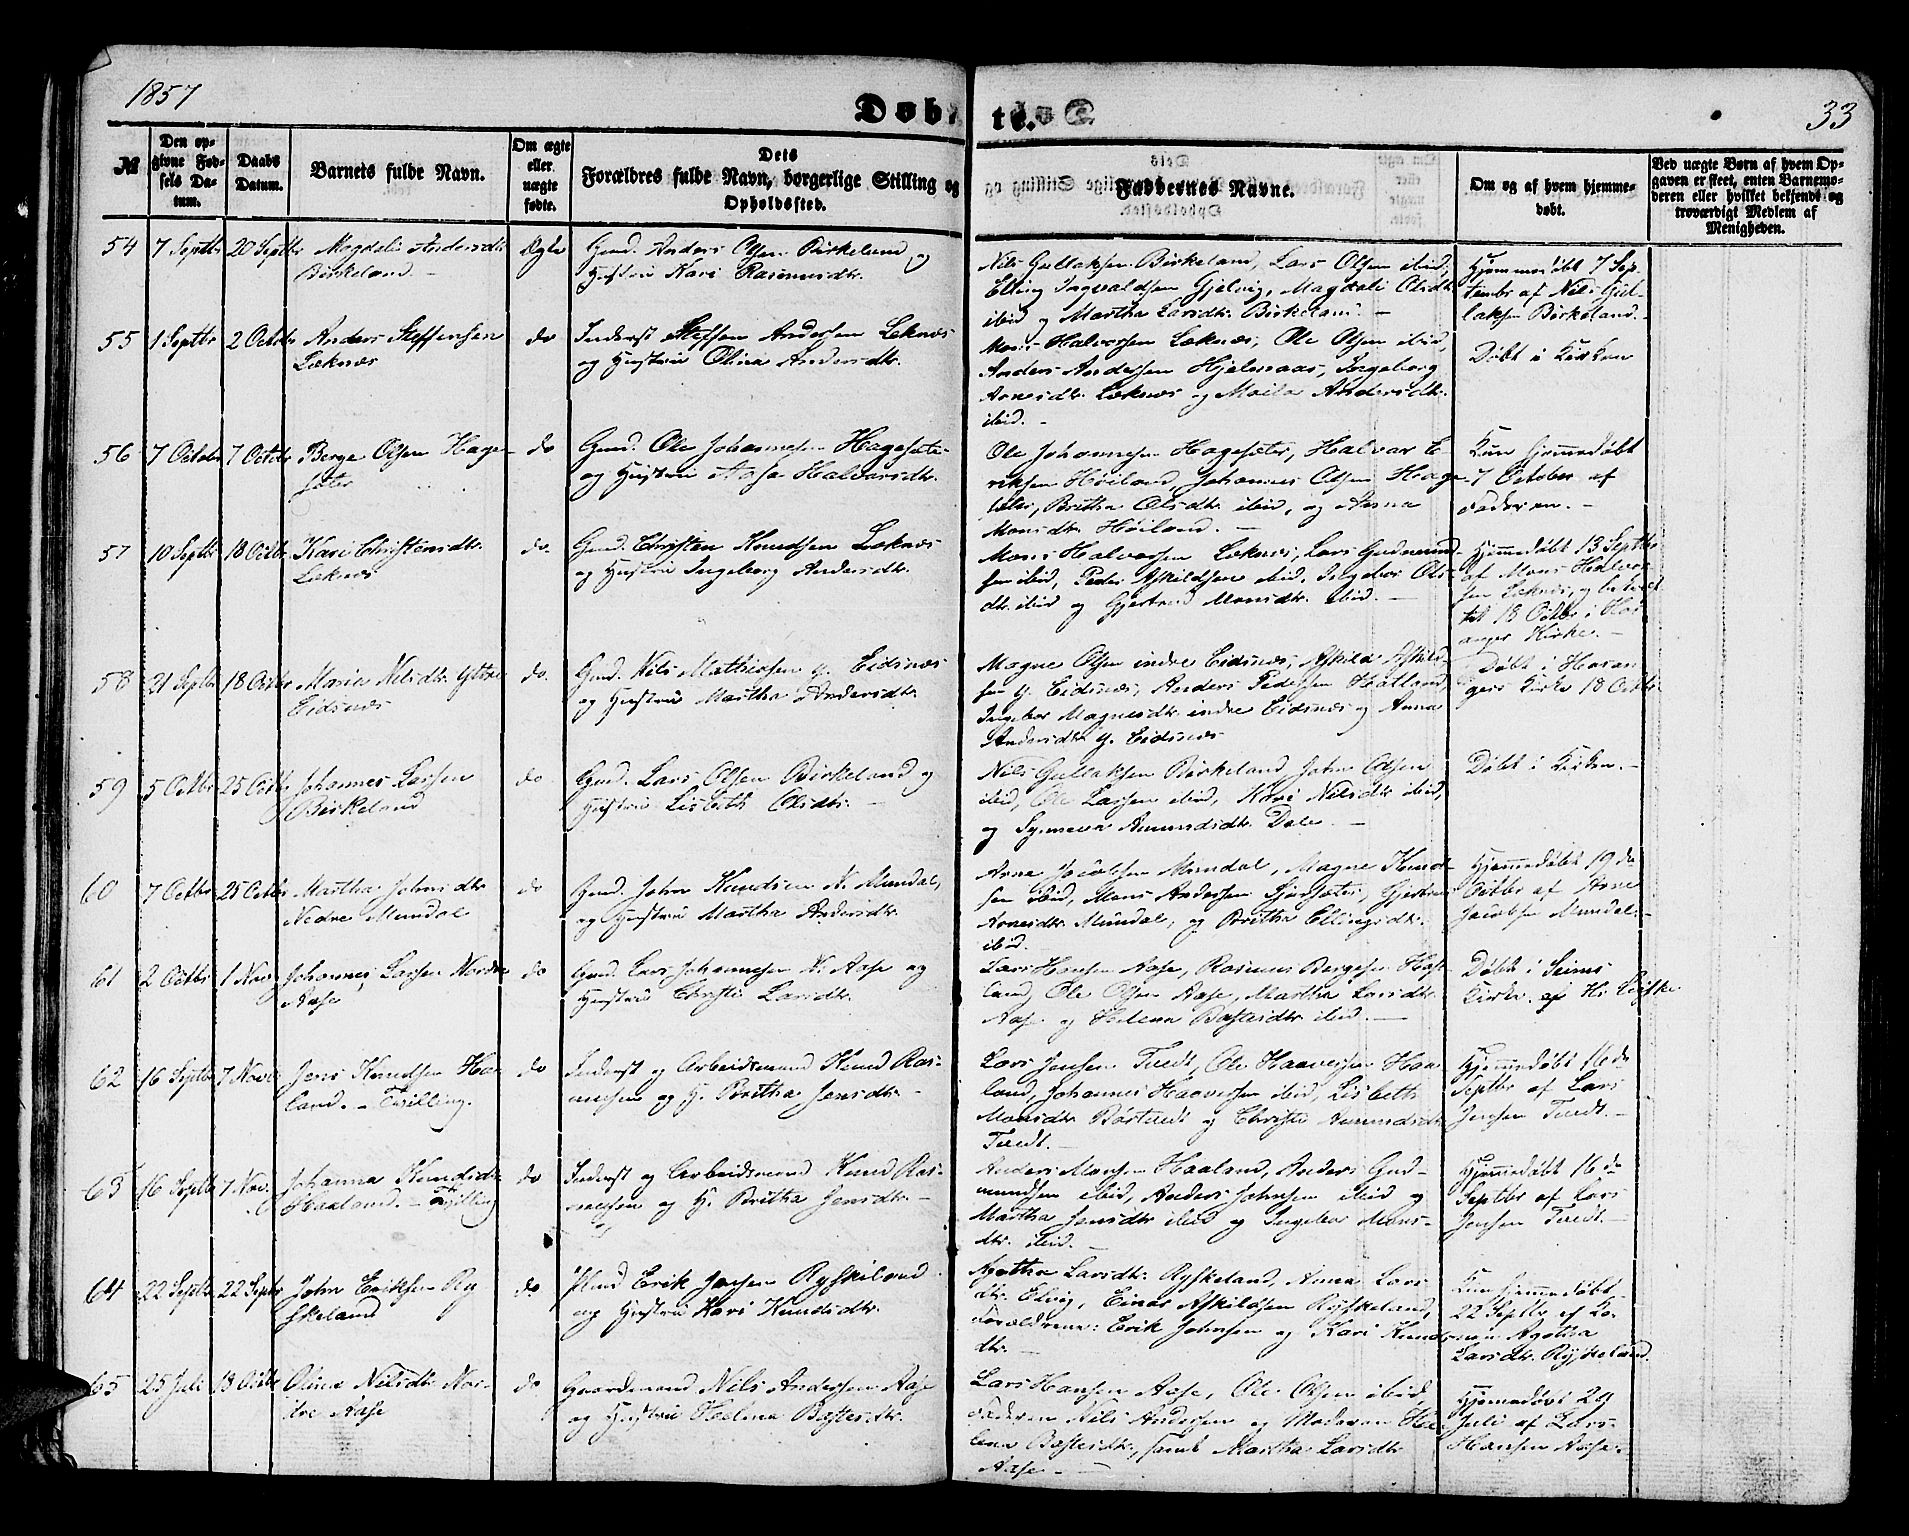 1857
Døbte.
33
№
Den op-
givne Fød-
sels Da-
tum.
Daabs
Datum.
Barnets fulde Navn.
Om ægte
eller
uægte
fødte.
Dets
Forældres fulde Navn, borgerlige Stilling og
Opholdssted.
Faddernes Navne.
Om og af hvem hjemme-
døbt.
Ved uægte Børn af hvem Op-
gaven er skeet, enten Barnemo-
deren eller hvilket bekjendt og
troværdigt Medlem af
Menigheden.
54 7 Septbr 20 Septbr Magdeli Andersdtr
Birkeland
Ægte
Gmd. Anders Olsen Birkeland og
Hustrü Kari Rasmusdtr.
Nils Gullaksen Birkeland, Lars Olsen ibid,
Elling Ingvaldsen Gjelvig, Magdeli Olsdtr
ibid og Martha Larsdtr. Birkeland.
Hjemmedøbt 7 Sep-
tembr af Nils Gul-
laksen Birkeland.
55 1 Septbr 2 Octobr Anders Steffensen
Læknæs
do
Inderst Steffen Andersen Læknæs
og Hustrü Olina Andersdtr.
Mons Halvorsen Læknæs, Ole Olsen ibid,
Anders Andersen Hjelmaas, Ingeborg
Arnesdtr. Læknæs og Andersdtr.
ibid.
Døbt i Kirken
56 7 Octobr 7 Octobr Berge Olsen Hage-
sæter
do
Gmd. Ole Johannesen Hagesæter
og Hustrü Aase Halvarsdtr.
Ole Johannesen Hagesæter, Halvar E-
riksen Høiland, Johannes Olsen Hage-
sæter, Brittha Olsdtr. ibid, og Anna
Monsdtr. Høiland.
Kun hjemmedøbt
7 October af
Faderen.
57 10 Septbr 18 Octbr. Kari Christensdtr.
Læknæs
do.
Gmd. Christen Knudsen Læknæs
og Hustrü Ingeborg Andersdtr.
Mons Halvorsen Læknæs, Lars Gudmund-
sen ibid, Peder Askildsen ibid, Ingebor Ols-
dtr. ibid og Gjertrud Monsdtr. ibid.
Hjemmedøbt 13 Septbr
af Mons Halvor-
sen Læknæs, og
18 Octbr i Hos-
anger Kirke.
58 21 Septbr 18 Octbr Maria Nilsdtr. Yttre
Eidsnæs
do.
Gmd. Nils Mathiasen y. Eidsnæs
og Hustrü Martha Andersdtr.
Magne Olsen indre Eidsnæs, Askild Askild-
sen y. Eidsnæs, Anders Pedersen Hatland,
Ingebor Magnesdtr. indre Eidsnæs og Anna
Andersdtr. y. Eidsnæs
Døbt i Hosan-
gers Kirke 18 Octbr
59 5 Octbr 25 Octbr Johannes Larsen
Birkeland
do.
Gmd. Lars Olsen Birkeland og
Hustrü Lisbeth Olsdtr.
Nils Gullaksen Birkeland, John Olsen
ibid, Ole Larsen ibid, Kari Nilsdtr ibid,
og Synneva Amundsdtr. Dale.
Døbt i Kirken.
60 7 Octbr 25 Octbr Martha Johnsdtr.
Nedre Mundal
do
Gmd. John Knudsen N. Mundal,
og Hustrü Martha Andersdtr.
Arne Jacobsen Mundal, Magne Knud-
sen ibid, Mons Andersen, Gjertrud
Arnesdtr. Mundal, og Brittha Ellingsdtr.
ibid.
Hjemmedøbt 19 de
Octbr af Arne
Jacobsen Mundal.
61 2 Octbr 1 Nov Johannes Larsen Nordre
Aase
do
Gmd. Lars Johannesen N. Aase og
Hustrü Christi Larsdtr.
Lars Hansen Aase, Rasmus Bergesen
Ole Olsen Aase, Martha Larsdtr.
Aase og Helena Bastesdtr. ibid.
Døbt i Seims
Kirke af Hr.
62 16 Septbr 7 Novb Jens Knudsen Haa-
land. Tvilling.
do
Inderst og Arbeidsmand Knud Ras-
musen og H. Brittha Jensdtr.
Lars Jensen Tvedt, Ole Haaversen Haa-
land, Johannes Haaversen ibid, Lisbeth
Monsdtr Børtvedt og Christi Amundsdtr.
Tvedt.
Hjemmedøbt 16 de
Septbr af Lars
Jensen Tvedt.
63 16 Septbr 7 Nov. Johanna Knudsdtr
Haaland. Tvilling
do
Inderst og Arbeidsmand Knud Ras-
musen og H. Brittha Jensdtr.
Anders Monsen Haaland, Anders Gud-
mundsen ibid, Anders Johnsen ibid og
Martha Jensdtr ibid og Ingebor Mons-
dtr. ibid.
Hjemmedøbt 16 de
Septbr af Lars
Jensen Tvedt.
64 22 Septbr 22 Septbr John Eriksen Ry-
skeland
do
Erik Jonsen Ryskeland
og Hustrü Kari Knudsdtr.
Agatha Larsdtr. Ryskeland, Anna Lars-
dtr. Elvig, Einar Askildsen Ryskeland,
Forældrene: Erik Johnsen og Kari Knuds-
dtr.
Kun hjemmedøbt
22 Septbr af Ko-
nen Agatha
Larsdtr. Ryskeland.
65 25 Juli 18 Octbr Olina Nilsdtr. Nor-
dre Aase
do
Gaardmand Nils Andersen Aase
og Hustrü Helena Bastesdtr.
Lars Hansen Aase, Ole Olsen ibid,
Faderen Nils Andersen og Moderen He-
lena Bastesdtr., samt Martha Larsdtr
Aase.
Hjemmedøbt 29
Juli af Lars
Hansen Aase.